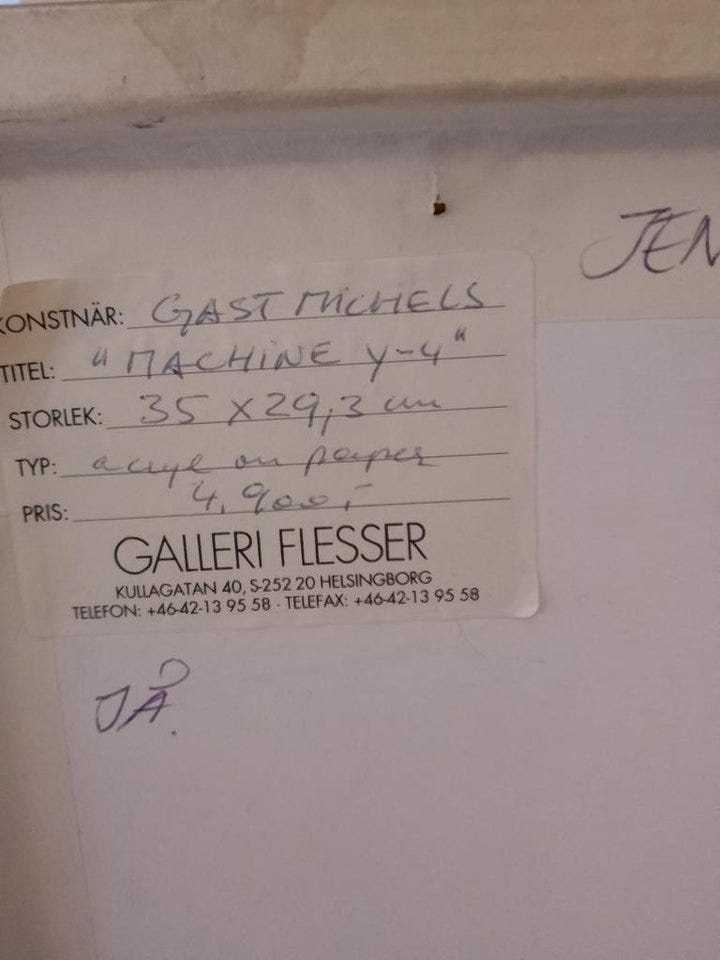 JEN
KONSTNÄR: GAST MICHELS
TITEL: "MACHINE Y-4"
STORLEK: 35 x 29,3 cm
TYP: acryl on paper
PRIS: 4,900,-
GALLERI FLESSER
KULLAGATAN 40, S-252 20 HELSINGBORG
TELEFON: +46-42-13 95 58 · TELEFAX: +46-42-13 95 58
JÅ.